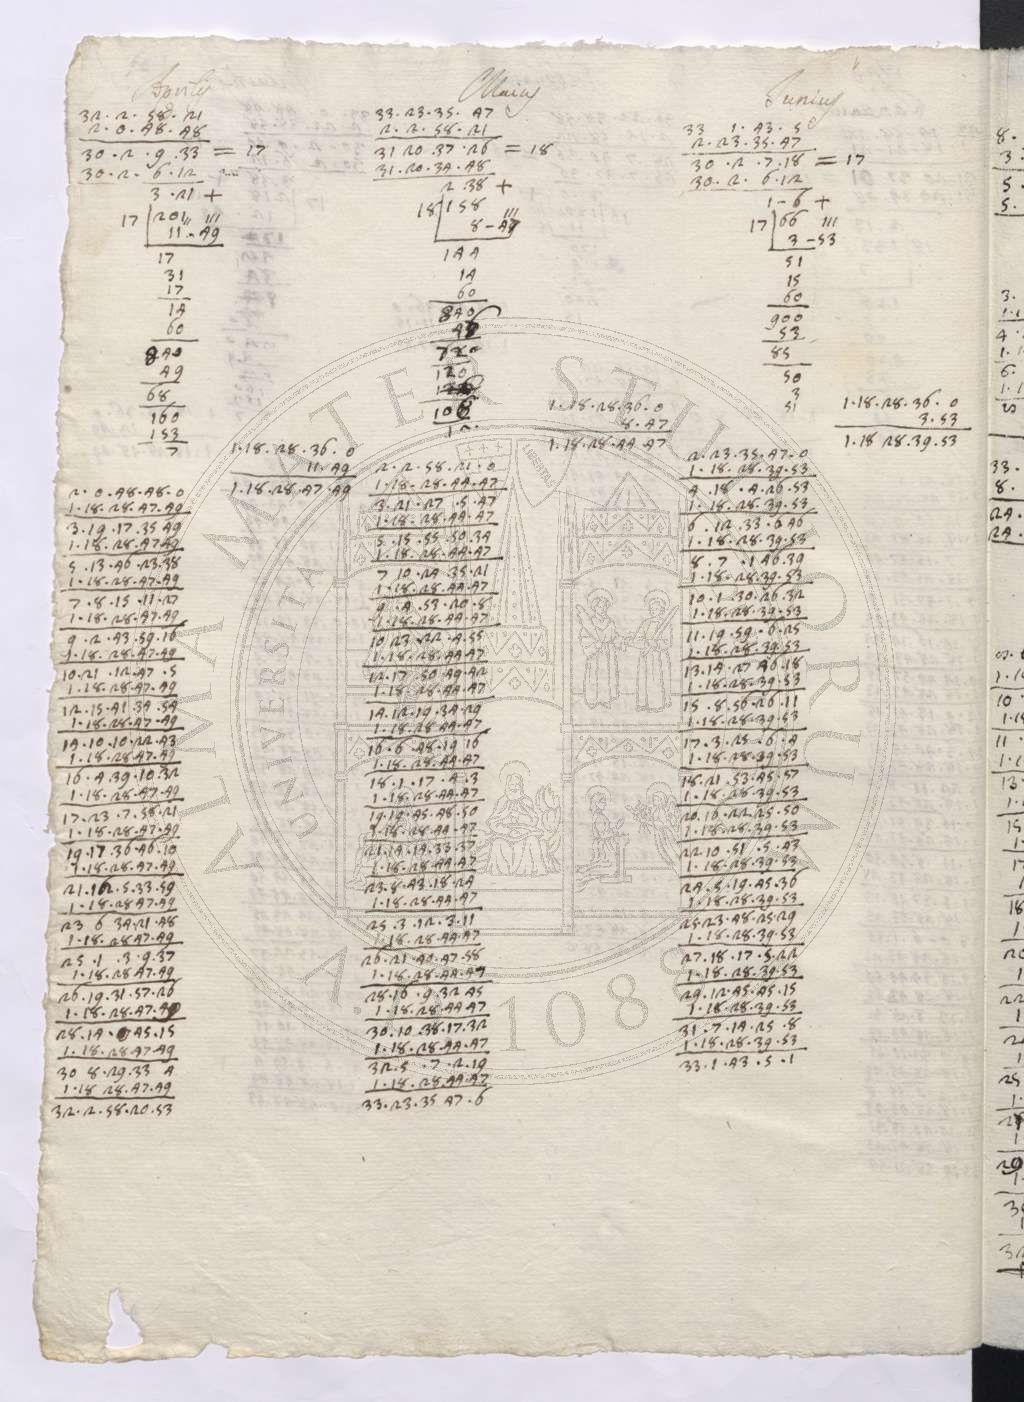 Aprilis
32. 2. 58. 21
2. 0. 48. 48
30. 2. 9. 33 = 17
30. 2. 6. 12
3. 21 +
17 201 '''
11 - 49
17
31
17
14
60
840
49
68
160
153
7
1. 18. 28. 36. 0
11. 49
1. 18. 28. 47. 49
2. 0. 48. 48. 0
1. 18. 28. 47. 49
3. 19. 17. 35 49
1. 18. 28. 47 49
5. 13. 46. 23. 38
1. 18. 28. 47. 49
7. 8. 15. 11. 27
1. 18. 28. 47. 49
9. 2. 43. 59. 16
1. 18. 28. 47. 49
10. 21. 12. 47. 5
1. 18. 28. 47. 49
12. 15. 41. 34. 54
1. 18. 28. 47. 49
14. 10. 10. 22. 43
1. 18. 28. 47. 49
16. 4. 39. 10. 32
1. 18. 28. 47. 49
17. 23. 7. 58. 21
1. 18. 28. 47. 49
19. 17. 36. 46. 10
1. 18. 28. 47. 49
21. 12. 5. 33. 59
1. 18. 28. 47. 49
23 6 34. 21. 48
1. 18. 28. 47. 49
25. 1. 3. 9. 37
1. 18. 28. 47. 49
26. 19. 31. 57. 26
1. 18. 28. 47. 49
28. 14. 0 45. 15
1. 18. 28. 47. 49
30 8. 29. 33 4
1. 18 28. 47. 49
32. 2. 58. 20. 53
Maius
33. 23. 35. 47
2. 2. 58. 21
31 20. 37. 26 = 18
31. 20. 34. 48
2. 38 +
18 158 '''
8 - 47
144
14
60
840
720
120
108
1. 18. 28. 36. 0
8. 47
1. 18. 28. 44. 47
2. 2. 58. 21. 0
1. 18. 28. 44. 47
3. 21. 27. 5. 47
1. 18. 28. 44. 47
5. 15. 55. 50. 34
1. 18. 28. 44. 47
7 10. 24 35. 21
1. 18. 28. 44. 47
9. 4. 53. 20. 8
1. 18. 28. 44. 47
10 23. 22. 4. 55
1. 18. 28. 44. 47
12. 17. 50 49. 42
1. 18. 28. 44. 47
14. 12. 19. 34. 29
1. 18. 28 44. 47
16. 6. 48. 19 16
1. 18. 28. 44. 47
18. 1. 17. 4. 3
1. 18. 28. 44. 47
19. 19. 45. 48. 50
1. 18. 28. 44. 47
21. 14. 14. 33. 37
1. 18. 28. 44. 47
23. 8. 43. 18. 24
1. 18. 28. 44. 47
25. 3. 12. 3. 11
1. 18. 28. 44. 47
26. 21. 40. 47. 58
1. 18. 28. 44. 47
28. 16. 9. 32 45
1. 18. 28. 44 47
30. 10. 38. 17. 32
1. 18. 28. 44. 47
32. 5. 7. 2. 19
1. 18. 28. 44. 47
33. 23. 35 47. 6
Junius
33 1. 43. 5
2. 23. 35. 47
30. 2. 7. 18 = 17
30. 2. 6. 12
1 - 6 +
17 66 '''
3 - 53
51
15
60
900
53
85
50
3
51
1. 18. 28. 36. 0
3. 53
1. 18 28. 39. 53
2. 23. 35. 47. 0
1. 18. 28. 39. 53
4. 18. 4. 26. 53
1. 18. 28. 39. 53
6. 12. 33. 6 46
1. 18. 28. 39. 53
8. 7. 1 46. 39
1. 18. 28. 39. 53
10. 1. 30. 26. 32
1. 18. 28. 39. 53
11. 19. 59. 6. 25
1. 18. 28. 39. 53
13. 14. 27 46. 18
1. 18. 28. 39. 53
15. 8. 56. 26. 11
1. 18. 28. 39. 53
17. 3. 25. 6. 4
1. 18. 28. 39. 53
18. 21. 53. 45. 57
1. 18. 28. 39. 53
20. 16. 22. 25. 50
1. 18. 28. 39. 53
22 10. 51. 5. 43
1. 18. 28. 39. 53
24. 5. 19. 45. 36
1. 18. 28. 39. 53
25. 23. 48. 25. 29
1. 18. 28. 39. 53
27. 18. 17. 5. 22
1. 18. 28. 39. 53
29. 12. 45. 45. 15
1. 18. 28. 39. 53
31. 7. 14. 25. 8
1. 18. 28. 39. 53
33. 1. 43. 5. 1
ALMA MATER STUDIORUM
UNIVERSITA
A.D. 1088
LIBERTAS